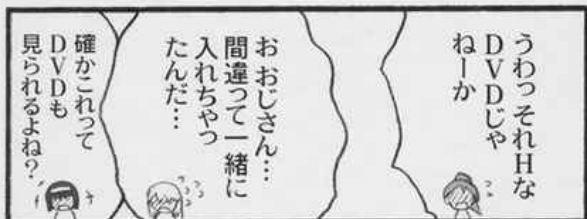 うわっそれHな
DVDじゃ
ねーか
お おじさん…
間違って一緒に
入れちゃっ
たんだ…
確かこれって
DVDも
見られるよね?